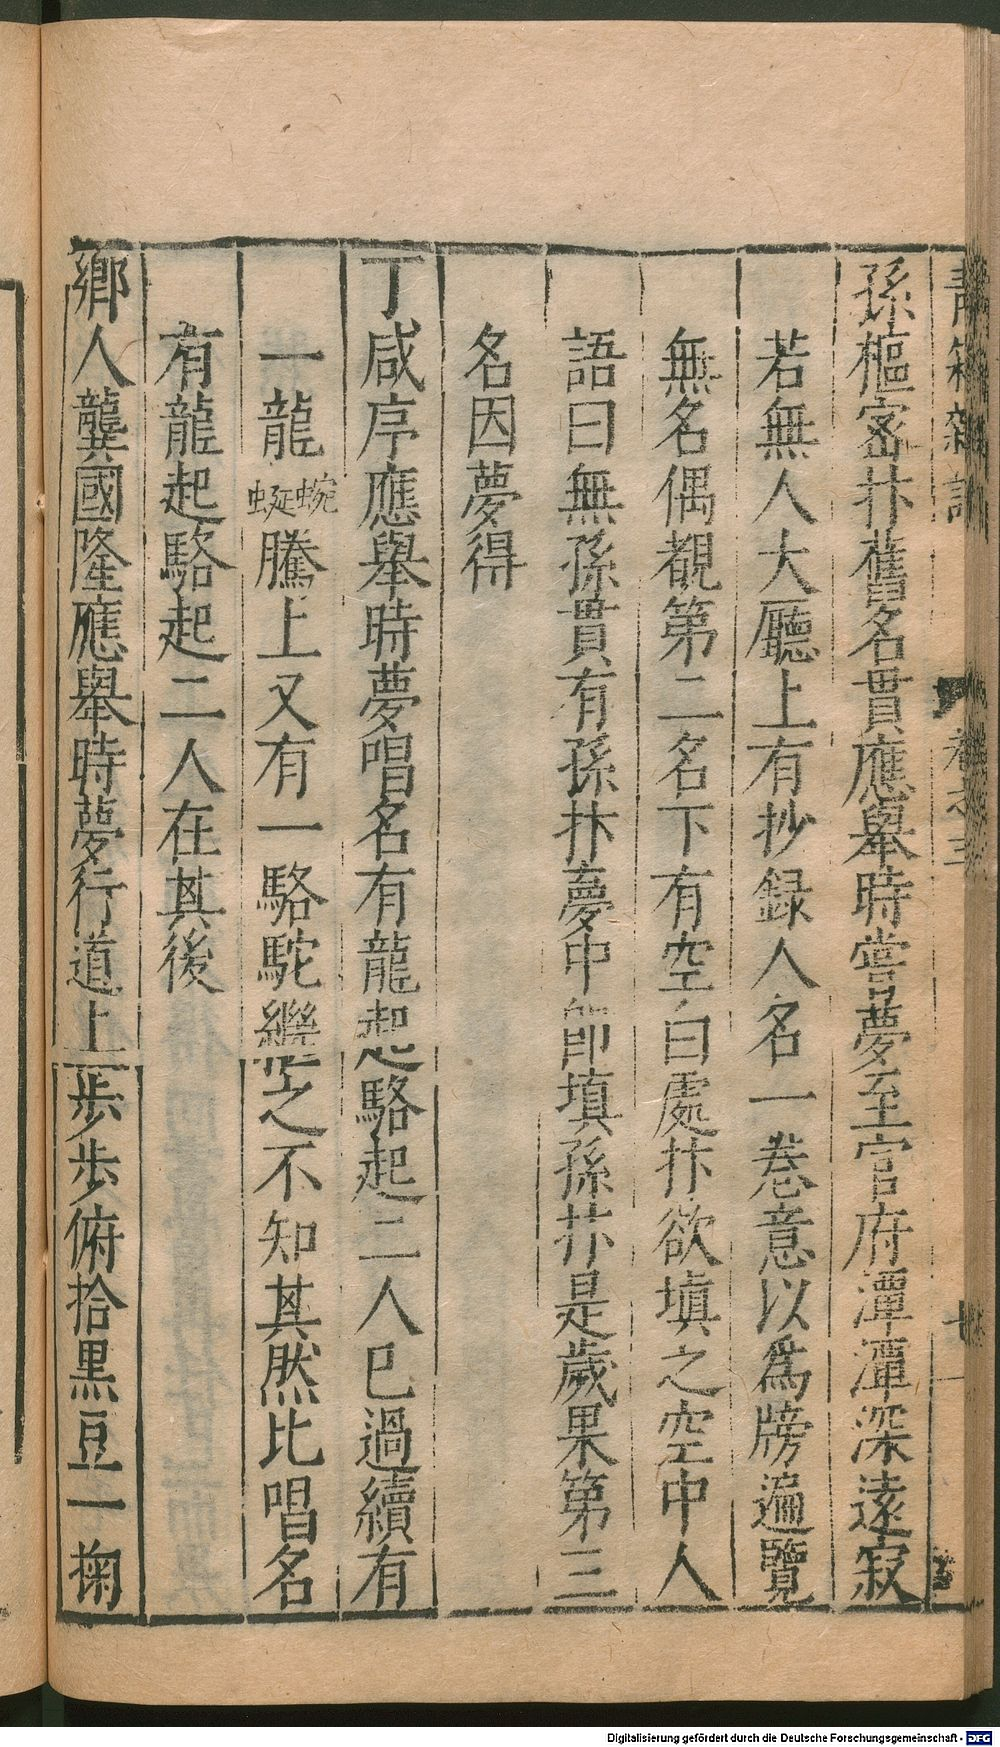 青箱雜記 卷之三
孫樞密抃舊名貫應舉時嘗夢至官府潭潭深遠寂
若無人大廳上有抄録人名一卷意以爲牓遍覽
無名偶覩第二名下有空白處抃欲填之空中人
語曰無孫貫有孫抃夢中即填孫抃是歲果第三
名因夢得
丁咸序應舉時夢唱名有龍起駱起二人已過續有
一龍蜿蜒騰上又有一駱駝繼之不知其然比唱名
有龍起駱起二人在其後
鄉人龔國隆應舉時夢行道上步步俯拾黑豆一掬
Digitalisierung gefördert durch die Deutsche Forschungsgemeinschaft - DFG